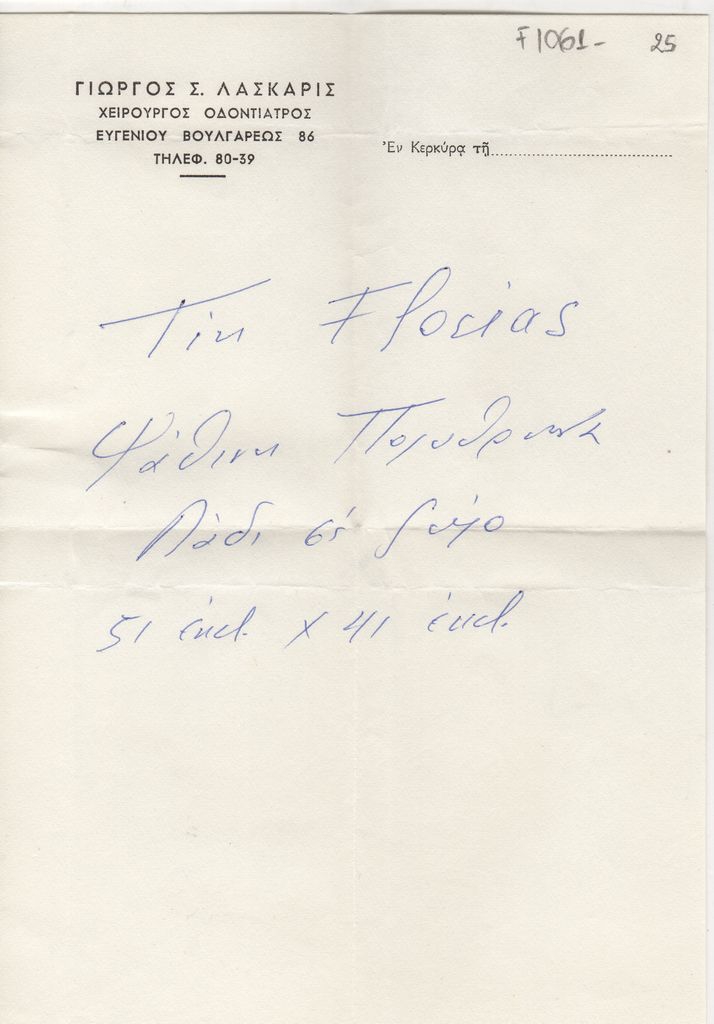 F1061- 25
ΓΙΩΡΓΟΣ Σ. ΛΑΣΚΑΡΙΣ
ΧΕΙΡΟΥΡΓΟΣ ΟΔΟΝΤΙΑΤΡΟΣ
ΕΥΓΕΝΙΟΥ ΒΟΥΛΓΑΡΕΩΣ 86
ΤΗΛΕΦ. 80-39
Ἐν Κερκύρᾳ τῇ
Ψάθινη Πολυθρόνα
Λάδι σέ ξύλο
51 ἑκατ. X 41 ἑκατ.